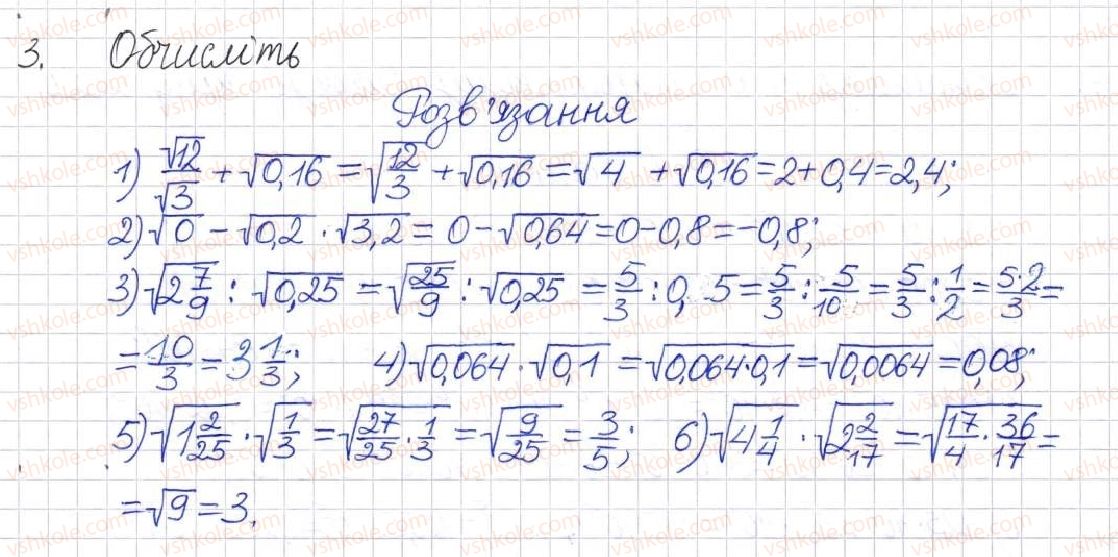 3. Обчисліть
Розв'язання
1) √12/√3 + √0,16 = √(12/3) + √0,16 = √4 + √0,16 = 2 + 0,4 = 2,4;
2) √0 − √0,2 · √3,2 = 0 − √0,64 = 0 − 0,8 = −0,8;
3) √(2 7/9) : √0,25 = √(25/9) : √0,25 = 5/3 : 0,5 = 5/3 : 5/10 = 5/3 : 1/2 = 5·2/3 =
= 10/3 = 3 1/3; 4) √0,064 · √0,1 = √(0,064·0,1) = √0,0064 = 0,08;
5) √(1 2/25) · √(1/3) = √(27/25 · 1/3) = √(9/25) = 3/5; 6) √(4 1/4) · √(2 2/17) = √(17/4 · 36/17) =
= √9 = 3.